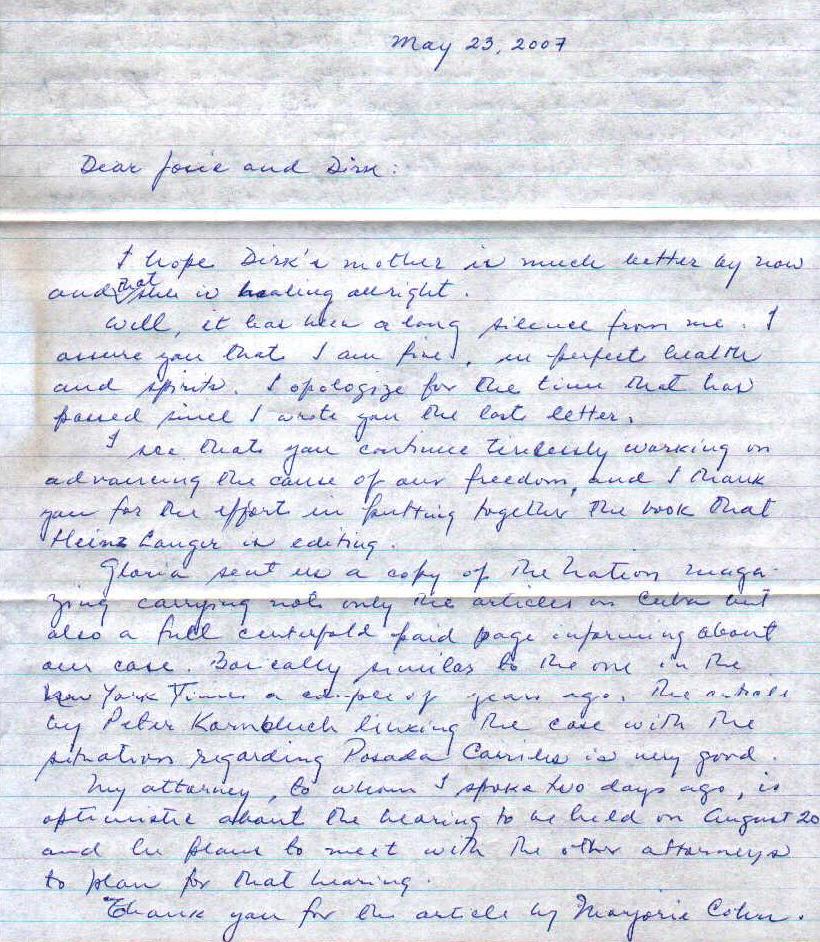 May 23, 2007
Dear Josie and Dirk:
I hope Dirk's mother is much better by now
and that she is healing allright.
Well, it has been a long silence from me. I
assure you that I am fine, in perfect health
and spirits. I apologize for the time that has
passed since I wrote you the last letter.
I see that you continue tirelessly working on
advancing the cause of our freedom, and I thank
you for the effort in putting together the book that
Heinz Langer is editing.
Gloria sent us a copy of the Nation maga-
zing carrying not only the articles on Cuba but
also a full centerfold paid page informing about
our case. Basically similar to the one in the
New York Times a couple of years ago. The article
by Peter Kornbluch linking the case with the
situation regarding Posada Carriles is very good.
My attorney, to whom I spoke two days ago, is
optimistic about the hearing to be held on August 20
and he plans to meet with the other attorneys
to plan for that hearing.
Thank you for the article by Marjorie Cohn.